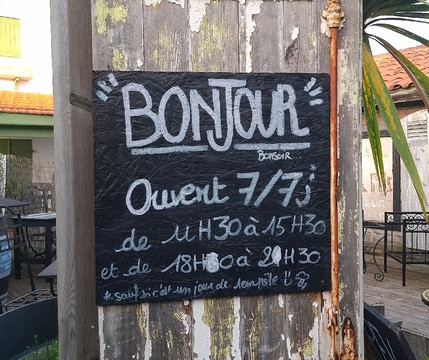 BONJOUR
BONSOIR...
Ouvert 7/7j*
de 11H30 à 15H30
et de 18H30 à 21H30
* sauf si c'est un jour de tempête